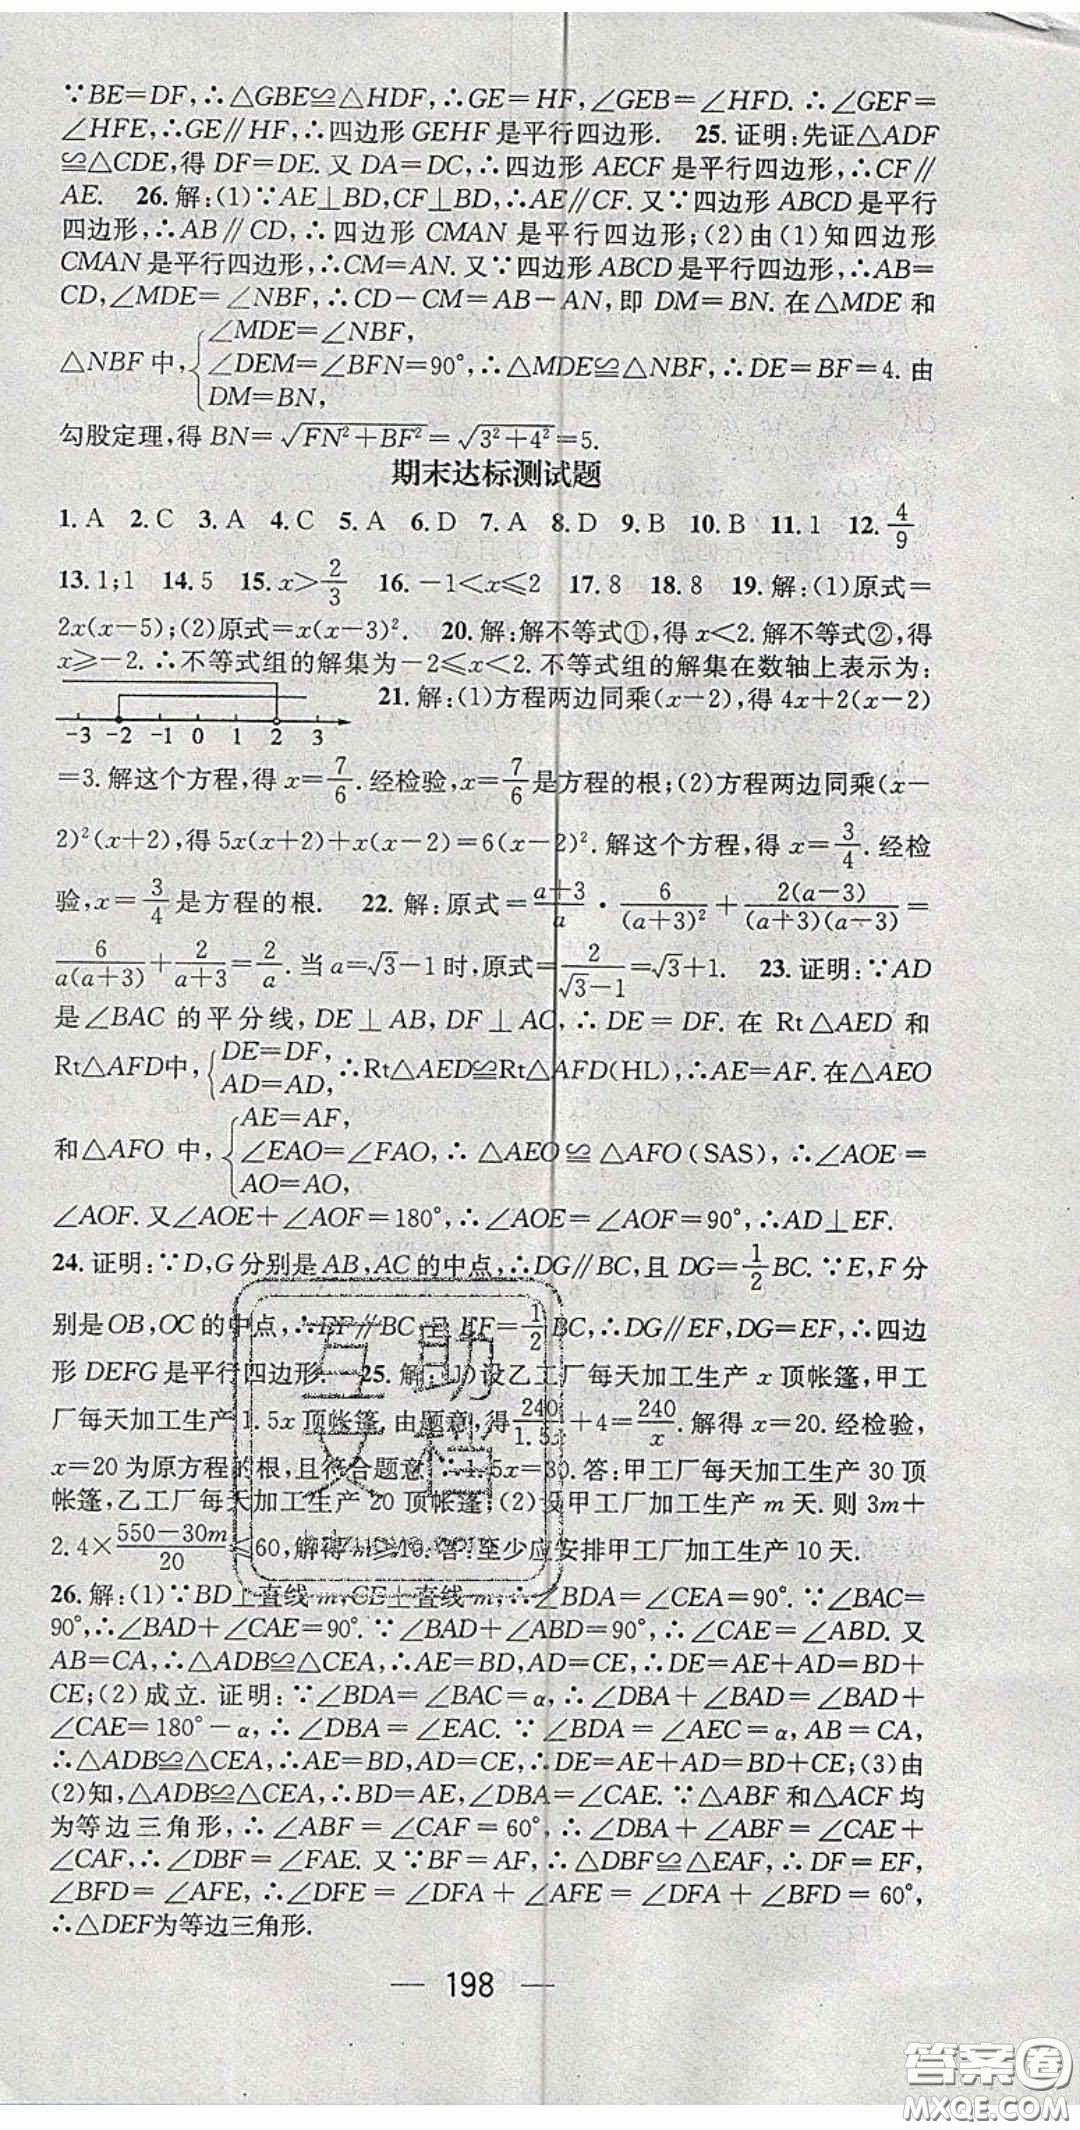 ∵BE=DF,∴△GBE≌△HDF,∴GE=HF,∠GEB=∠HFD.∴∠GEF=
∠HFE,∴GE∥HF,∴四边形 GEHF 是平行四边形. 25.证明:先证△ADF
≌△CDE,得 DF=DE.又 DA=DC,∴四边形 AECF 是平行四边形,∴CF∥
AE. 26.解:(1)∵AE⊥BD,CF⊥BD,∴AE∥CF.又∵四边形 ABCD 是平行
四边形,∴AB∥CD,∴四边形 CMAN 是平行四边形;(2)由(1)知四边形
CMAN 是平行四边形,∴CM=AN.又∵四边形 ABCD 是平行四边形,∴AB=
CD,∠MDE=∠NBF,∴CD-CM=AB-AN,即 DM=BN.在△MDE 和
△NBF 中,{∠MDE=∠NBF, ∠DEM=∠BFN=90°, DM=BN, ∴△MDE≌△NBF,∴DE=BF=4.由
勾股定理,得 BN=√(FN²+BF²)=√(3²+4²)=5.
期末达标测试题
1.A 2.C 3.A 4.C 5.A 6.D 7.A 8.D 9.B 10.B 11.1 12.4/9
13.1;1 14.5 15.x>2/3 16.-1<x≤2 17.8 18.8 19.解:(1)原式=
2x(x-5);(2)原式=x(x-3)². 20.解:解不等式①,得 x<2.解不等式②,得
x≥-2.∴不等式组的解集为-2≤x<2.不等式组的解集在数轴上表示为:
-3 -2 -1 0 1 2 3 21.解:(1)方程两边同乘(x-2),得 4x+2(x-2)
=3.解这个方程,得 x=7/6.经检验,x=7/6是方程的根;(2)方程两边同乘(x-
2)²(x+2),得 5x(x+2)+x(x-2)=6(x-2)².解这个方程,得 x=3/4.经检
验,x=3/4是方程的根. 22.解:原式=(a+3)/a·6/(a+3)²+2(a-3)/((a+3)(a-3))=
6/(a(a+3))+2/(a+3)=2/a.当 a=√3-1 时,原式=2/(√3-1)=√3+1. 23.证明:∵AD
是∠BAC 的平分线,DE⊥AB,DF⊥AC,∴DE=DF.在 Rt△AED 和
Rt△AFD中,{DE=DF, AD=AD, ∴Rt△AED≌Rt△AFD(HL),∴AE=AF.在△AEO
和△AFO 中,{AE=AF, ∠EAO=∠FAO, AO=AO, ∴△AEO≌△AFO(SAS),∴∠AOE=
∠AOF.又∠AOE+∠AOF=180°,∴∠AOE=∠AOF=90°,∴AD⊥EF.
24.证明:∵D,G 分别是 AB,AC 的中点,∴DG∥BC,且 DG=1/2BC.∵E,F 分
别是 OB,OC 的中点,∴EF∥BC 且 EF=1/2BC,∴DG∥EF,DG=EF,∴四边
形 DEFG 是平行四边形. 25.解:(1)设乙工厂每天加工生产 x 顶帐篷,甲工
厂每天加工生产 1.5x 顶帐篷,由题意,得240/1.5x+4=240/x.解得 x=20.经检验,
x=20 为原方程的根,且符合题意.∴1.5x=30.答:甲工厂每天加工生产 30 顶
帐篷,乙工厂每天加工生产 20 顶帐篷;(2)设甲工厂加工生产 m 天.则 3m+
2.4×(550-30m)/20≤60,解得 m≥10.答:至少应安排甲工厂加工生产 10 天.
26.解:(1)∵BD⊥直线 m,CE⊥直线 m,∴∠BDA=∠CEA=90°.∵∠BAC=
90°,∴∠BAD+∠CAE=90°.∵∠BAD+∠ABD=90°,∴∠CAE=∠ABD.又
AB=CA,∴△ADB≌△CEA,∴AE=BD,AD=CE,∴DE=AE+AD=BD+
CE;(2)成立.证明:∵∠BDA=∠BAC=α,∴∠DBA+∠BAD=∠BAD+
∠CAE=180°-α,∴∠DBA=∠EAC.∵∠BDA=∠AEC=α,AB=CA,
∴△ADB≌△CEA,∴AE=BD,AD=CE,∴DE=AE+AD=BD+CE;(3)由
(2)知,△ADB≌△CEA,∴BD=AE,∠DBA=∠CAE.∵△ABF 和△ACF 均
为等边三角形,∴∠ABF=∠CAF=60°,∴∠DBA+∠ABF=∠CAE+
∠CAF,∴∠DBF=∠FAE.又∵BF=AF,∴△DBF≌△EAF,∴DF=EF,
∠BFD=∠AFE,∴∠DFE=∠DFA+∠AFE=∠DFA+∠BFD=60°,
∴△DEF为等边三角形.
— 198 —
互助
文档
答案圈
MXQE.COM